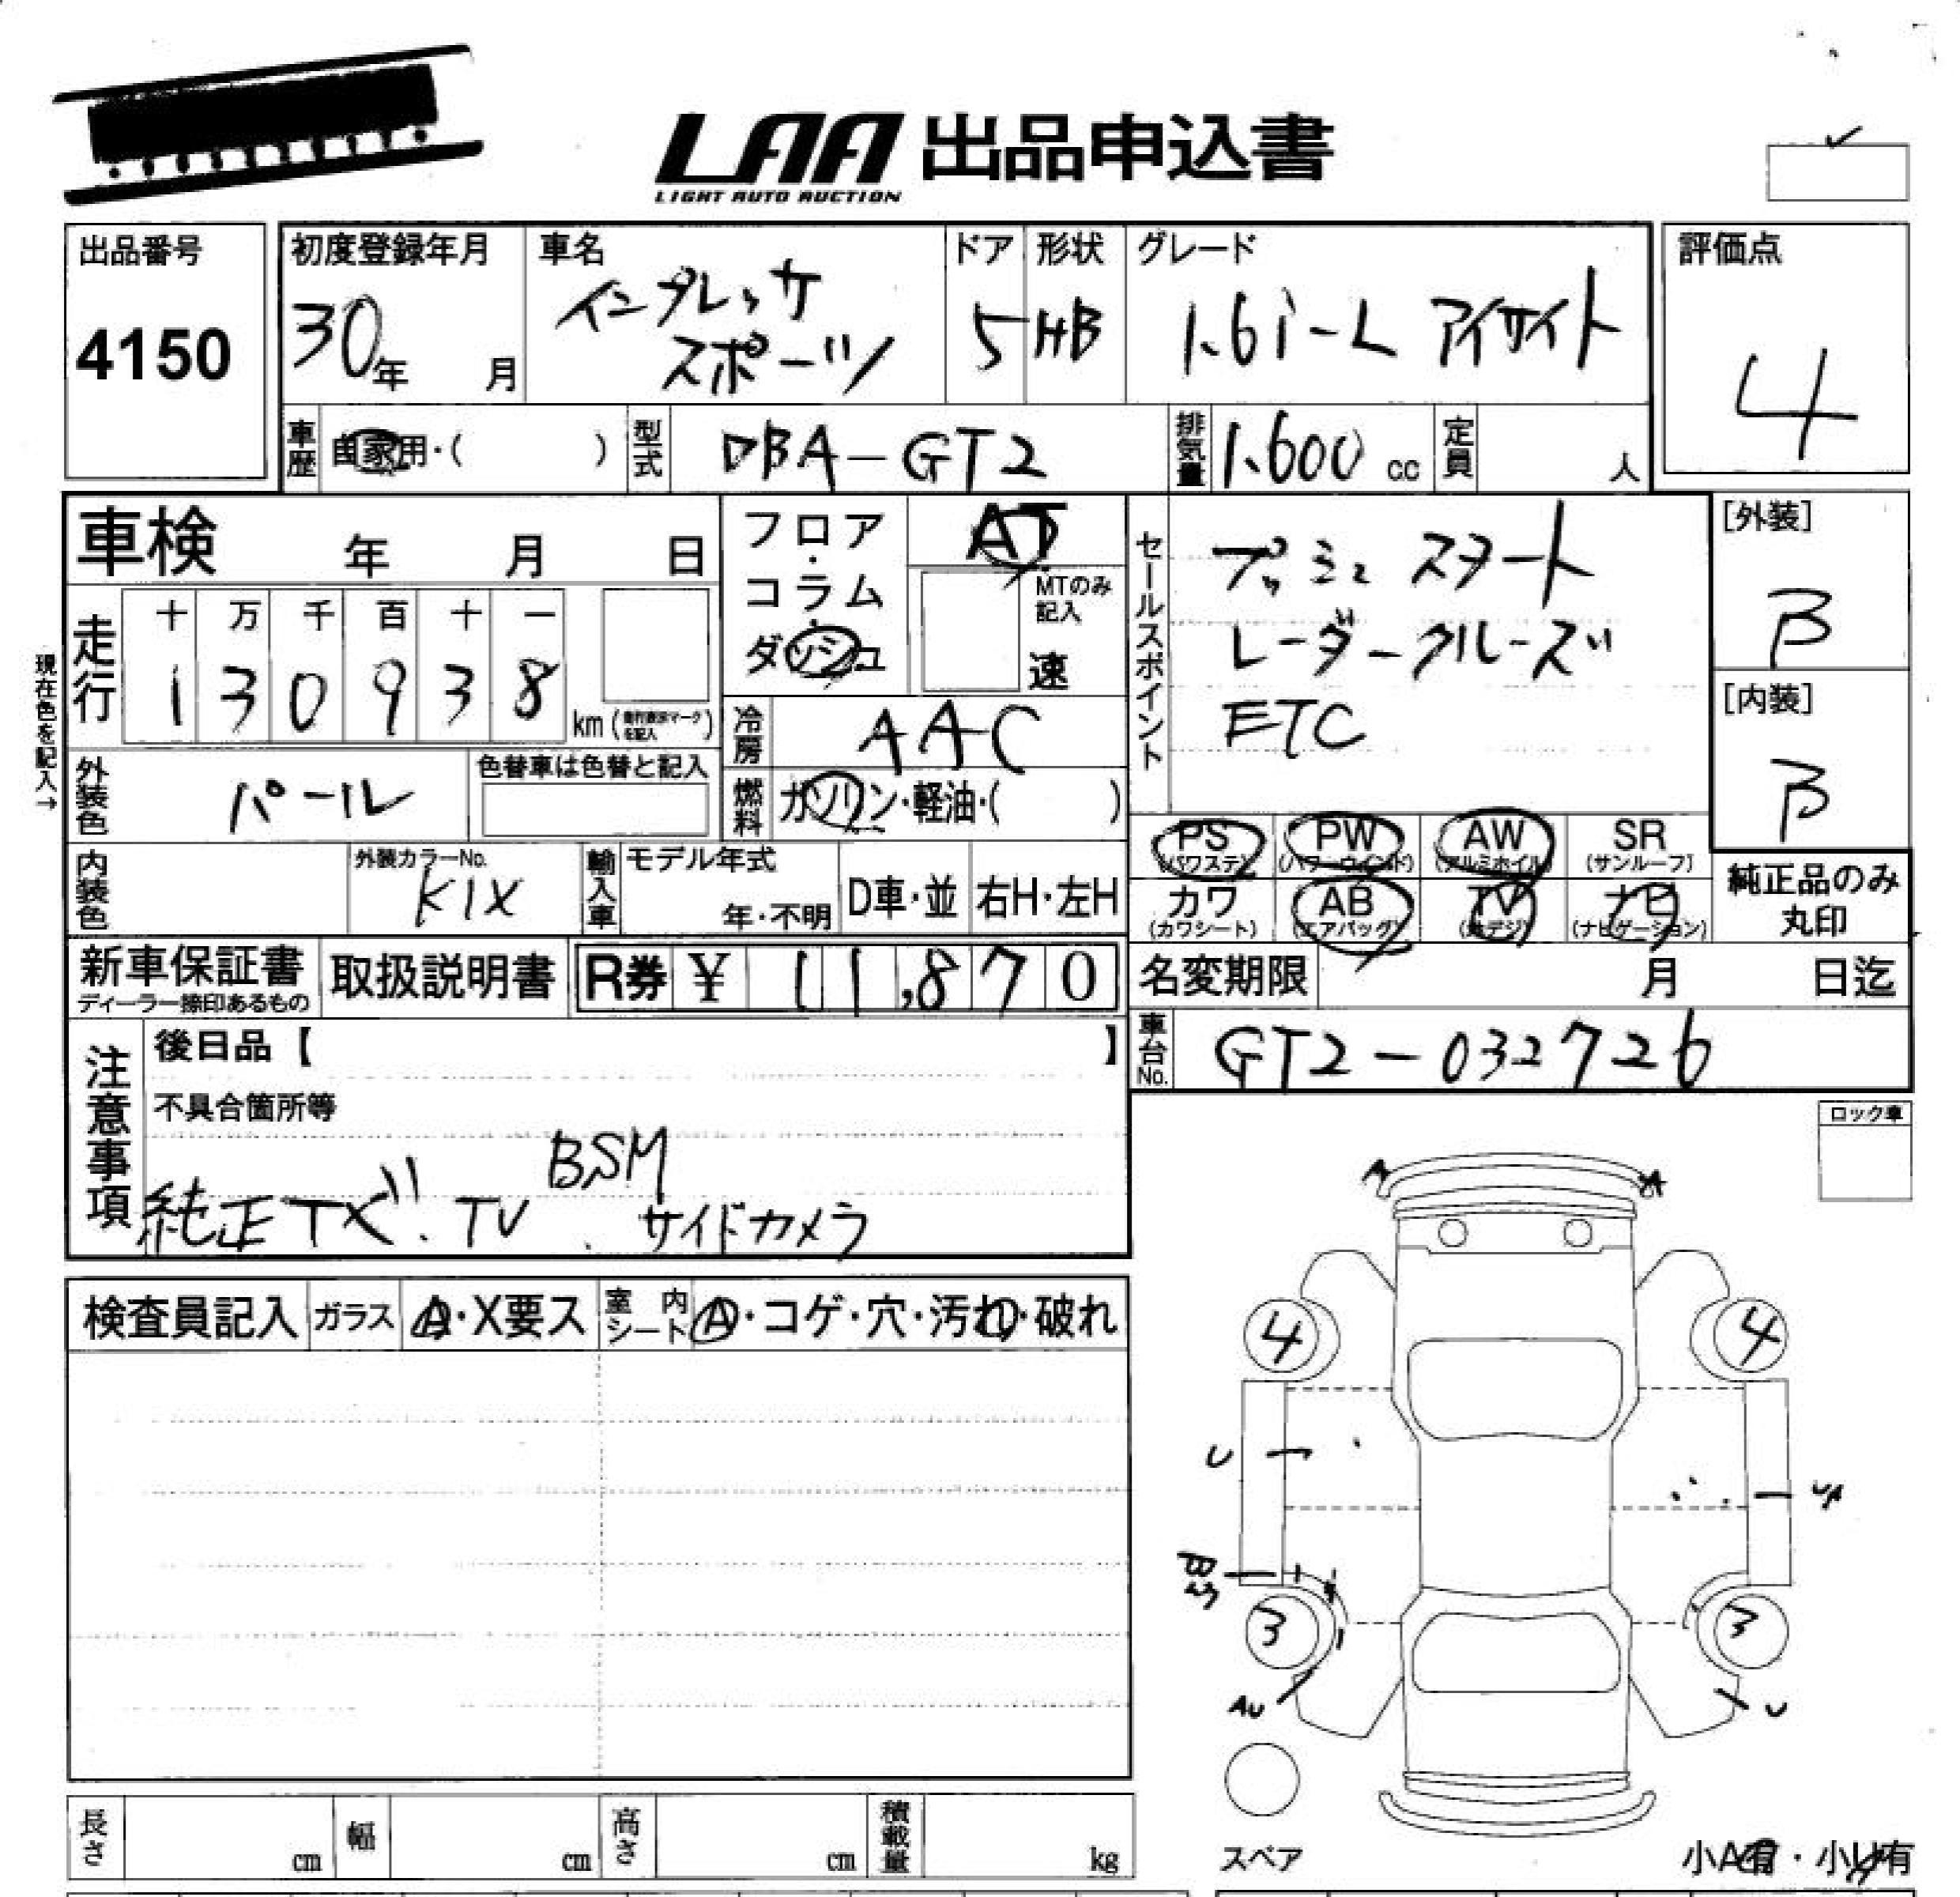 LAA 出品申込書
LIGHT AUTO AUCTION
出品番号
4150
初度登録年月
30年 月
車名
インプレッサ
スポーツ
ドア
5
形状
HB
グレード
1.6i-L アイサイト
評価点
4
車歴 自家用・( )
型式 DBA-GT2
排気量 1.600 cc
定員 人
車検 年 月 日
フロア・コラム
ダッシュ
AT
MTのみ記入
速
セールスポイント
プッシュスタート
レーダークルーズ
ETC
[外装]
B
[内装]
B
現在色を記入→
走行
十 万 千 百 十 一
1 3 0 9 3 8
km
冷房 AAC
外装色 パール
色替車は色替と記入
燃料 ガソリン・軽油・( )
PS (パワステ)
PW (パワーウインド)
AW (アルミホイル)
SR (サンルーフ)
カワ (カワシート)
AB (エアバッグ)
TV (地デジ)
ナビ (ナビゲーション)
純正品のみ
丸印
内装色
外装カラーNo.
K1X
輸入車
モデル年式
年・不明
D車・並
右H・左H
新車保証書
ディーラー捺印あるもの
取扱説明書
R券 ¥ 11,870
名変期限 月 日迄
車台No. GT2-032726
注意事項
後日品【 】
不具合箇所等
BSM
純正 . TV . サイドカメラ
ロック車
検査員記入
ガラス A・X要ス
室内シート A・コゲ・穴・汚れ・破れ
A A
4 4
U UA
B3
3 3
AU U
スペア
小A有・小U有
長さ cm
幅 cm
高さ cm
積載量 kg